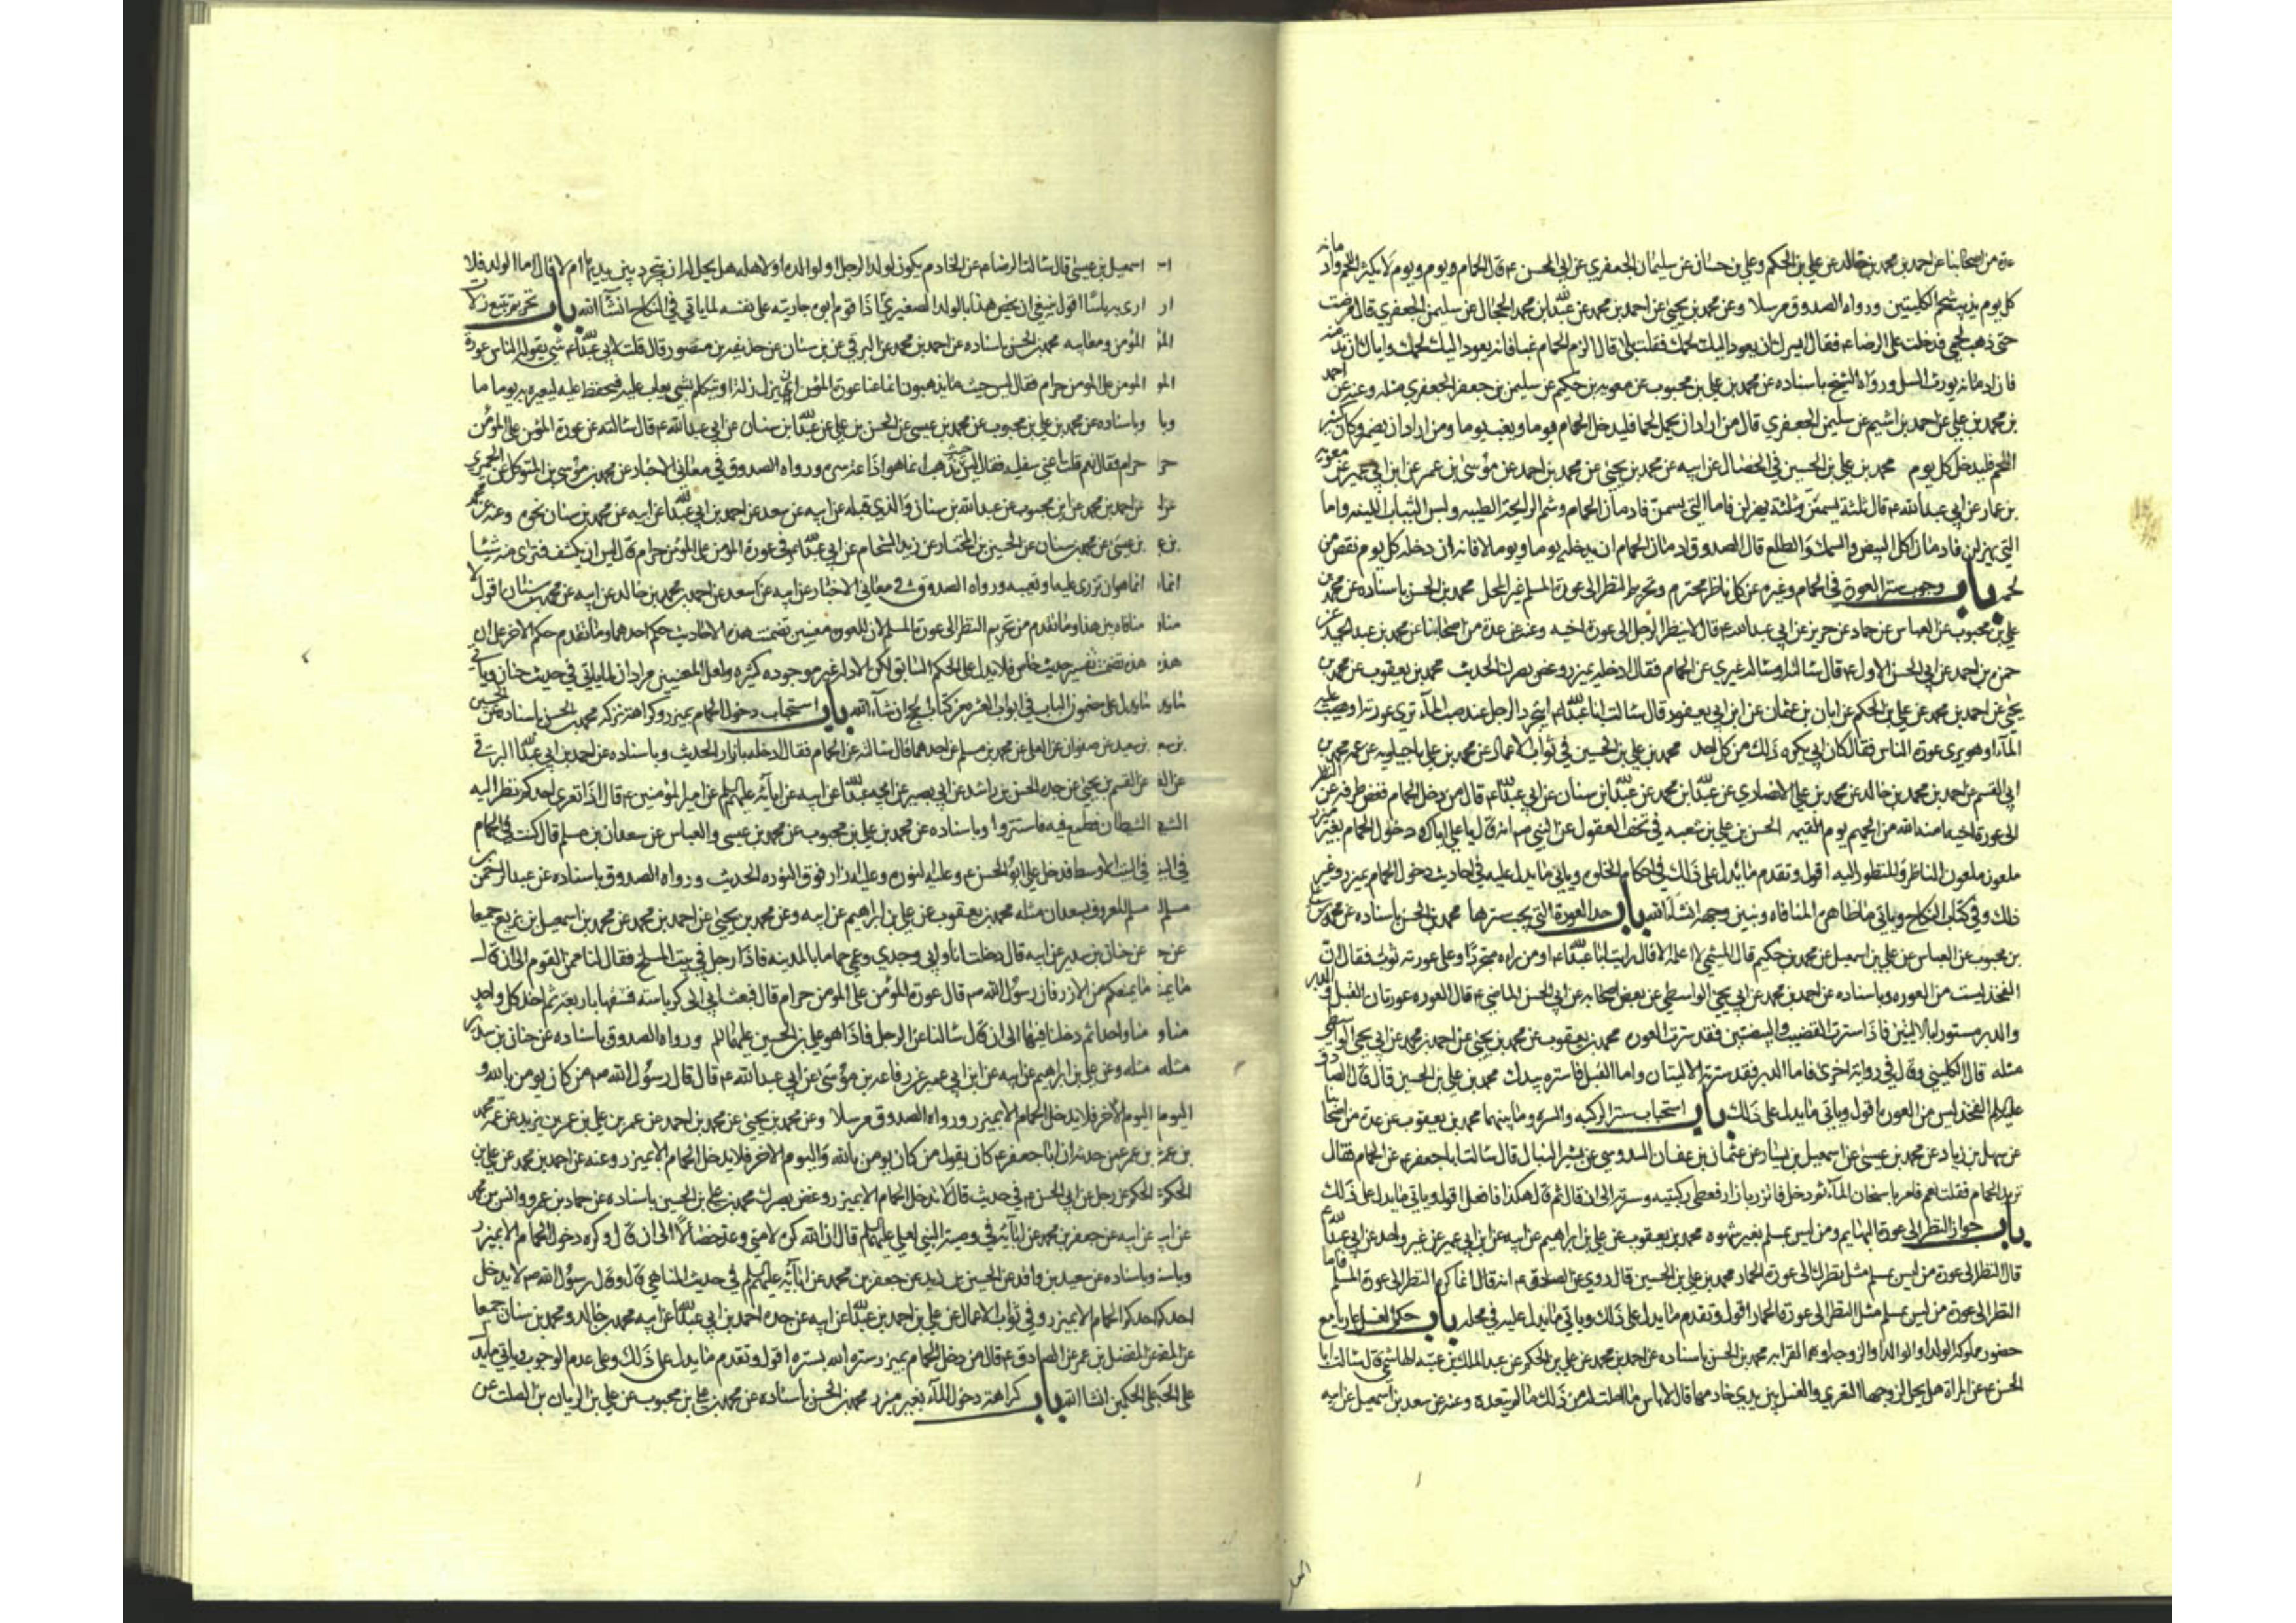 عدة من اصحابنا عن احمد بن محمد بن خالد عن علي بن الحكم وعلي بن حسان عن سليمان الجعفري عن ابي الحسن ع قال الحمام يوم ويوم لا يكثر اللحم وادمانه
كل يوم يذيب شحم الكليتين ورواه الصدوق مرسلا وعن محمد بن يحيى عن احمد بن محمد عن عبدالله بن محمد الحجال عن سليمن الجعفري قال مرضت
حتى ذهب لحمي فدخلت على الرضا ع فقال ايسرك ان يعود اليك لحمك فقلت بلى قال الزم الحمام غبا فانه يعود اليك لحمك واياك ان تدمنه
فان ادمانه يورث السل ورواه الشيخ باسناده عن محمد بن علي بن محبوب عن معوية بن حكيم عن سليمن بن جعفر الجعفري مثله وعنه عن احمد
بن محمد بن علي عن احمد بن اشيم عن سليمن الجعفري قال من اراد ان يحمل لحما فليدخل الحمام يوما ويغب يوما ومن اراد ان يضمر وكان كثير
اللحم فليدخل كل يوم محمد بن علي بن الحسين في الخصال عن ابيه عن محمد بن يحيى عن محمد بن احمد عن موسى بن عمر عن ابن ابي عمير عن معوية
بن عمار عن ابي عبدالله ع قال ثلثة يسمن وثلثة يهزلن فاما التي يسمن فادمان الحمام وشم الرايحة الطيبه ولبس الثياب اللينه واما
التي يهزلن فادمان اكل البيض والسمك والطلع قال الصدوق ادمان الحمام ان يدخله يوما ويوما لا فانه ان دخله كل يوم نقص من
لحمه باب وجوب ستر العورة في الحمام وغيره عن كل ناظر محترم وتحريم النظر الى عورة المسلم غير المحلل محمد بن الحسن باسناده عن محمد بن
علي بن محبوب عن العباس عن حماد عن حريز عن ابي عبدالله ع قال لا ينظر الرجل الى عورة اخيه وعنه عن عدة من اصحابنا عن محمد بن عبد الحميد عن
حمزه بن احمد عن ابي الحسن الاول ع قال سالته او ساله غيري عن الحمام فقال ادخله بميزر وغض بصرك الحديث محمد بن يعقوب عن محمد بن
يحيى عن احمد بن محمد عن علي بن الحكم عن ابان بن عثمان عن ابن ابي يعفور قال سالت ابا عبدالله ع ايتجرد الرجل عند صب المآء ترى عورته او يصب عليه
المآء او هو يرى عورة الناس فقال كان ابي يكره ذلك من كل احد محمد بن علي بن الحسين في ثواب الاعمال عن محمد بن علي ماجيلويه عن عمه محمد بن
ابي القسم عن احمد بن محمد بن خالد عن محمد بن علي الانصاري عن عبدالله بن محمد عن عبدالله بن سنان عن ابي عبدالله ع قال من دخل الحمام فغض طرفه عن النظر
الى عورة اخيه امنه الله من الحميم يوم القيمه الحسن بن علي بن شعبه في تحف العقول عن النبي ص انه قال يا علي اياك ودخول الحمام بغير ميزر
ملعون ملعون الناظر والمنظور اليه اقول وتقدم ما يدل على ذلك في احكام الخلوه وياتي ما يدل عليه في احاديث دخول الحمام بميزر وغير
ذلك وفي كتاب النكاح وياتي ما ظاهره المنافاه ونبين وجهه انشاءالله باب حد العورة التي يجب سترها محمد بن الحسن باسناده عن محمد بن علي
بن محبوب عن العباس عن علي بن اسمعيل عن محمد بن حكيم قال الميثمي لا اعلمه الا قال رايت ابا عبدالله ع او من راه متجردا وعلى عورته ثوب فقال ان
الفخذ ليست من العوره وباسناده عن احمد بن محمد عن ابي يحيى الواسطي عن بعض اصحابه عن ابي الحسن الماضي ع قال العوره عورتان القبل والدبر
والدبر مستور بالاليتين فاذا سترت القضيب والبيضتين فقد سترت العوره محمد بن يعقوب عن محمد بن يحيى عن احمد بن محمد عن ابي يحيى الواسطي
مثله قال الكليني وقال في رواية اخرى فاما الدبر فقد سترته الاليتان واما القبل فاستره بيدك محمد بن علي بن الحسين قال قال الصادق
عليه السلم الفخذ ليس من العورة اقول وياتي ما يدل على ذلك باب استحباب ستر الركبه والسره وما بينهما محمد بن يعقوب عن عدة من اصحابنا
عن سهل بن زياد عن محمد بن عيسى عن اسمعيل بن يسار عن عثمان بن عفان السدوسي عن بشير النبال قال سالت ابا جعفر ع عن الحمام فقال
تريد الحمام فقلت نعم فامر باسخان المآء ثم دخل فاتزر بازار فغطى ركبتيه وسرته الى ان قال ثم قال هكذا فافعل اقول وياتي ما يدل على ذلك
باب جواز النظر الى عورة البهايم ومن ليس بمسلم بغير شهوه محمد بن يعقوب عن علي بن ابراهيم عن ابيه عن ابن ابي عمير عن غير واحد عن ابي عبدالله ع
قال النظر الى عورة من ليس بمسلم مثل نظرك الى عورة الحمار محمد بن علي بن الحسين قال روي عن الصادق ع انه قال انما كره النظر الى عورة المسلم فاما
النظر الى عورة من ليس بمسلم مثل النظر الى عورة الحمار اقول وتقدم ما يدل على ذلك وياتي ما يدل عليه في محله باب حكم الغسل عاريا مع
حضور مملوكة الولد او الوالد او الزوجه او مع القرابه محمد بن الحسن باسناده عن احمد بن محمد عن علي بن الحكم عن عبد الملك بن عتبه الهاشمي قال سالت ابا
الحسن ع عن المراة هل يحل لزوجها التعري والغسل بين يدي خادمها قال لا باس ما احلت له من ذلك ما لم يتعده وعنه عن سعد بن اسمعيل عن ابيه
اسمعيل بن عيسى قال سالت الرضا ع عن الخادم يكون لولد الرجل او لوالده او لاهله هل يحل له ان يتجرد بين يديها ام لا قال اما الولد فلا
ارى به باسا اقول ينبغي ان يخص هذا بالولد الصغير اذا قوم ابوه جاريته على نفسه لما ياتي في النكاح انشآءالله باب تحريم تتبع زلات
المؤمن ومعايبه محمد بن الحسن باسناده عن احمد بن محمد عن البرقي عن بن سنان عن حذيفه بن منصور قال قلت لابي عبدالله ع شي يقوله الناس عورة
المومن على المومن حرام فقال ليس حيث يذهبون انما عنا عورة المؤمن ان يزل زلة او يتكلم بشي يعاب عليه فيحفظ عليه ليعيره به يوما ما
وباسناده عن محمد بن علي بن محبوب عن محمد بن عيسى عن الحسن بن علي عن عبدالله بن سنان عن ابي عبدالله ع قال سالته عن عورة المؤمن على المؤمن
حرام فقال نعم قلت اعني سفليه فقال ليس حيث تذهب انما هو اذاعة سره ورواه الصدوق في معاني الاخبار عن محمد بن موسى بن المتوكل عن الحميري
عن احمد بن محمد عن ابن محبوب عن عبدالله بن سنان والذي قبله عن ابيه عن سعد عن احمد بن ابي عبدالله عن ابيه عن محمد بن سنان نحوه وعنه عن محمد
بن عيسى عن محمد بن سنان عن الحسين بن المختار عن زيد الشحام عن ابي عبدالله ع في عورة المؤمن على المؤمن حرام قال ليس ان يكشف فترى منه شيئا
انما هو ان تزري عليه او تعيبه ورواه الصدوق في معاني الاخبار عن ابيه عن سعد عن احمد بن محمد بن خالد عن ابيه عن محمد بن سنان اقول لا
منافاه بين هذا وما تقدم من تحريم النظر الى عورة المسلم لان للعورة معنيين تضمنت هذه الاحاديث حكم احدهما وما تقدم حكم الاخر على ان
هذه تضمنت تفسير حديث خاص فلا يدل على الحكم السابق لكن الادله غيره موجوده كثيره ولعل المعنيين مرادان لما ياتي في حديث حنان وياتي
ما يدل على مضمون الباب في ابواب العشره من كتاب الحج انشآءالله باب استحباب دخول الحمام بميزر وكراهة تركه محمد بن الحسن باسناده عن الحسين
بن سعيد عن صفوان عن العلا عن محمد بن مسلم عن احدهما قال سالته عن الحمام فقال ادخله بازار الحديث وباسناده عن احمد بن ابي عبدالله البرقي
عن القسم بن يحيى عن جده الحسن بن راشد عن ابي بصير عن ابي عبدالله عن ابيه عن آبآئه عليهم السلم عن امير المؤمنين ع قال اذا تعرى احدكم نظر اليه
الشيطان فطمع فيه فاستتروا وباسناده عن محمد بن علي بن محبوب عن محمد بن عيسى والعباس عن سعدان بن مسلم قال كنت في الحمام
في البيت الاوسط فدخل علي ابو الحسن ع وعليه النوره وعليه ازار فوق النوره الحديث ورواه الصدوق باسناده عن عبد الرحمن بن
مسلم المعروف بسعدان مثله محمد بن يعقوب عن علي بن ابراهيم عن ابيه وعن محمد بن يحيى عن احمد بن محمد عن محمد بن اسمعيل بن بزيع جميعا
عن حنان بن سدير عن ابيه قال دخلت انا وابي وجدي وعمي حماما بالمدينه فاذا رجل في بيت المسلخ فقال لنا ممن القوم الى ان قال
ما يمنعكم من الازر فان رسول الله ص قال عورة المؤمن على المومن حرام قال فبعث ابي الى كرباسة فشقها باربعة ثم اخذ كل واحد
منا واحدا ثم دخلنا فيها الى ان قال سالنا عن الرجل فاذا هو علي بن الحسين عليهما السلم ورواه الصدوق باسناده عن حنان بن سدير
مثله وعن علي بن ابراهيم عن ابيه عن ابن ابي عمير عن رفاعه بن موسى عن ابي عبدالله ع قال قال رسول الله ص من كان يومن بالله و
اليوم الآخر فلا يدخل الحمام الا بميزر ورواه الصدوق مرسلا وعن محمد بن يحيى عن محمد بن احمد عن عمر بن علي بن عمر بن يزيد عن عمه محمد
بن عمر عمن حدثه ان ابا جعفر ع كان يقول من كان يومن بالله واليوم الاخر فلا يدخل الحمام الا بميزر وعنه عن احمد بن محمد عن علي بن
الحكم عن رجل عن ابي الحسن ع في حديث قال لا تدخل الحمام الا بميزر وغض بصرك محمد بن علي بن الحسين باسناده عن حماد بن عمرو وانس بن محمد
عن ابيه عن جعفر بن محمد عن آبآئه في وصية النبي لعلي عليهم السلم قال ان الله كره لامتي وعد خصالا الى ان قال وكره دخول الحمام الا بميزر
وباسناده عن سعيد بن واقد عن الحسين بن زيد عن جعفر بن محمد عن آبآئه عليهم السلم في حديث المناهي قال وقال رسول الله ص لا يدخل
احدكم الحمام الا بميزر وفي ثواب الاعمال عن علي بن احمد بن عبدالله عن ابيه عن جده احمد بن ابي عبدالله عن ابيه محمد بن خالد ومحمد بن سنان جميعا
عن المفضل بن عمر عن الصادق ع قال من دخل الحمام بميزر ستره الله بستره اقول وتقدم ما يدل على ذلك وعلى عدم الوجوب وياتي ما يدل
على الحكمين انشا الله باب كراهة دخول المآء بغير ميزر محمد بن الحسن باسناده عن محمد بن علي بن محبوب عن علي بن الريان بن الصلت عن